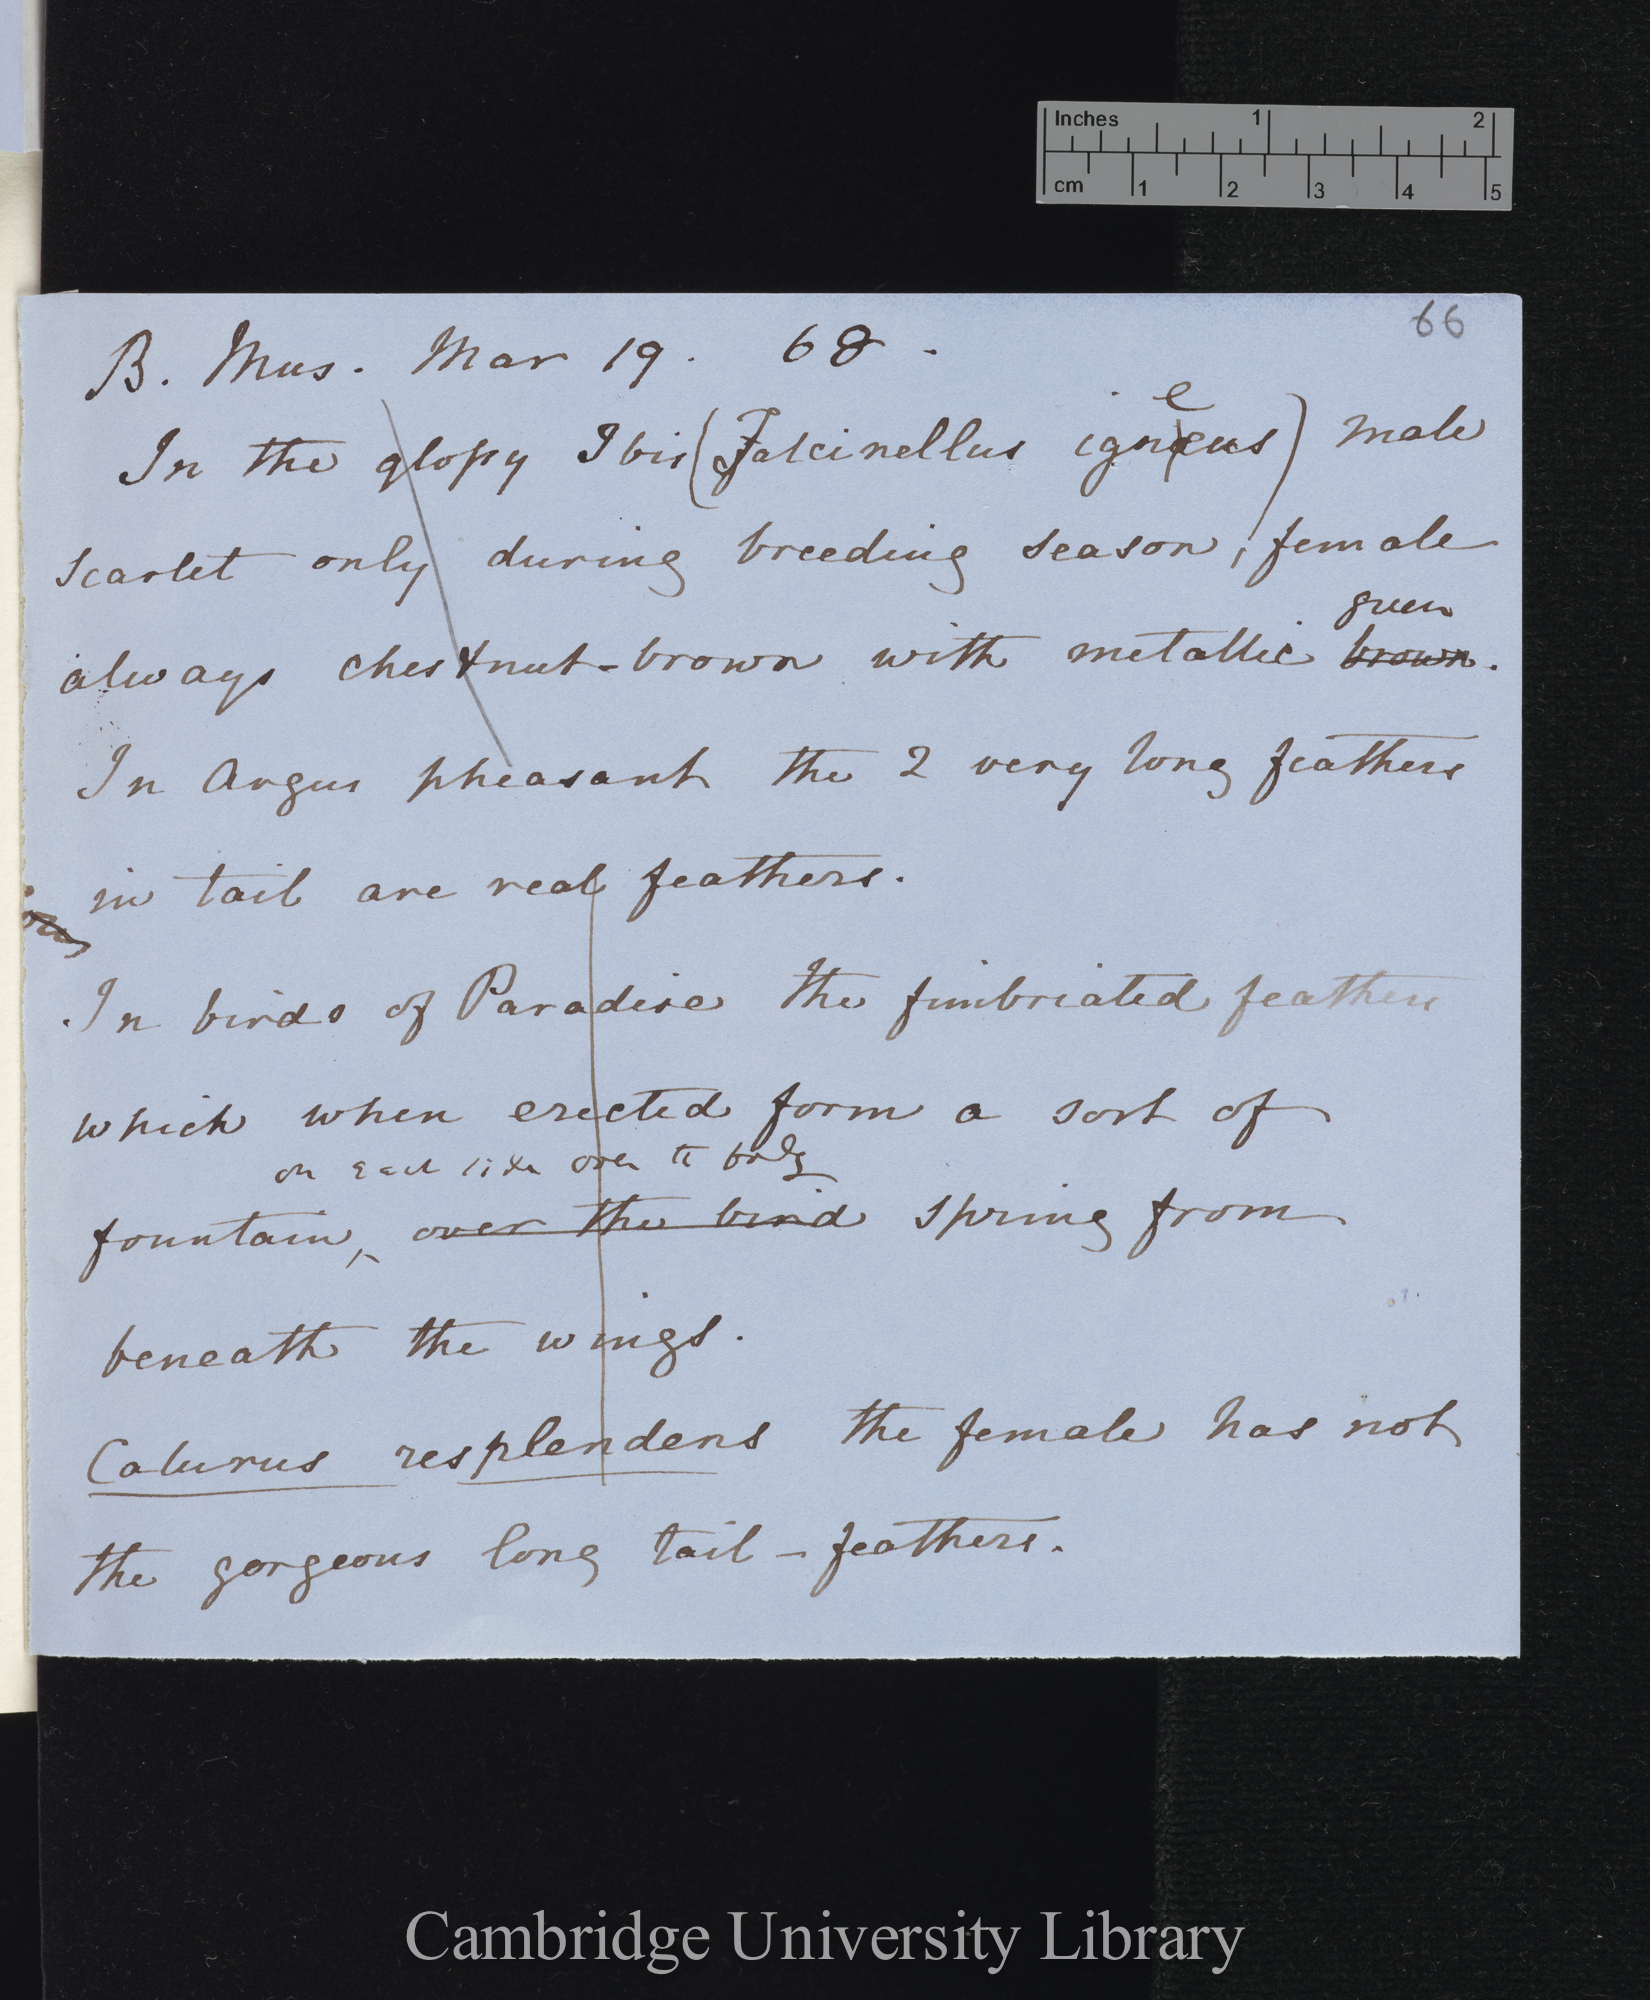 Inches 1 2
cm 1 2 3 4 5
66
B. Mus. Mar 19. 68.
e
In the glossy Ibis (Falcinellus igneus) male
scarlet only during breeding season, female
green
always chestnut-brown with metallic brown.
In Argus pheasant the 2 very long feathers
in tail are real feathers.
In birds of Paradise the fimbriated feathers
which when erected form a sort of
on each side over the body
fountain, over the bird spring from
beneath the wings.
Calurus resplendens the female has not
the gorgeous long tail-feathers.
Cambridge University Library